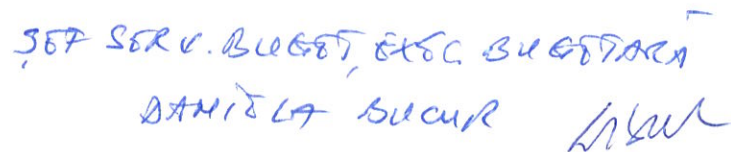 ȘEF SERV. BUGET, EXEC. BUGETARĂ
DANIELA BUCUR